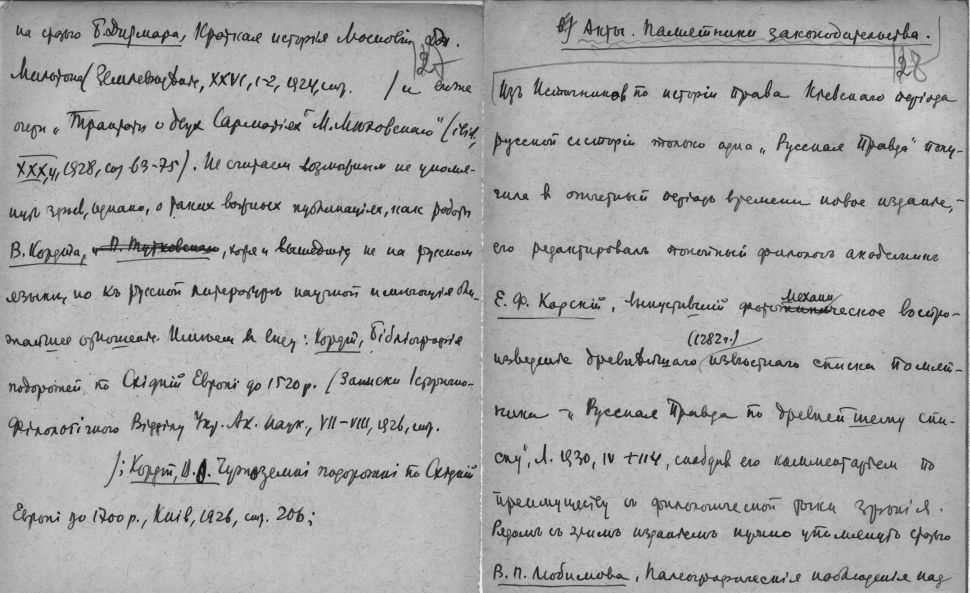 на статью Б. Дитмара, Краткая исторія Московіи Дж.
27
Мильтона / Землеведѣніе, XXVI, 1-2, 1924, стр. / и его же
очерк „Трактатъ о двух Сарматіях" М. Мѣховскаго" (ibid.
XXX, 1928, стр 63-75). Не считаем возможным не упомя-
нуть здѣсь, однако, о таких важных публикаціях, как работы
В. Кордта, хотя и вышедшия не на русском
языкѣ, но къ русской литературѣ научной имеющія бли-
жайшее отношеніе. Имѣем в виду: Кордт, Бібліографія
подорожей по Східній Европі до 1520 р. / Записки Історично-
Філологічного Відділу Укр. Ак. Наук, VII-VIII, 1926, стр.
/; Кордт, В. Чужоземні подорожні по Східній
Европі до 1700 р., Київ, 1926, стр. 206;
в) Акты. Памятники законодательства.
28
Изъ Источников по исторіи права Кіевскаго періода
русской исторіи только одна „Русская Правда" полу-
чила в отчетный періодъ времени новое изданіе,
его редактировалъ покойный филологъ академикъ
Е. Ф. Карскій, выпустивший фотомеханическое воспро-
(1282 г.)
изведеніе древнѣйшаго извѣстнаго списка Памят-
ника – „Русская Правда по древнейшему спи-
ску", Л. 1930, IV + 114, снабдив его комментаріем по
преимуществу с филологической точки зрѣнія.
Рядомъ съ этимъ изданіемъ нужно упомянуть статью
В. П. Любимова, Палеографическія наблюденія над